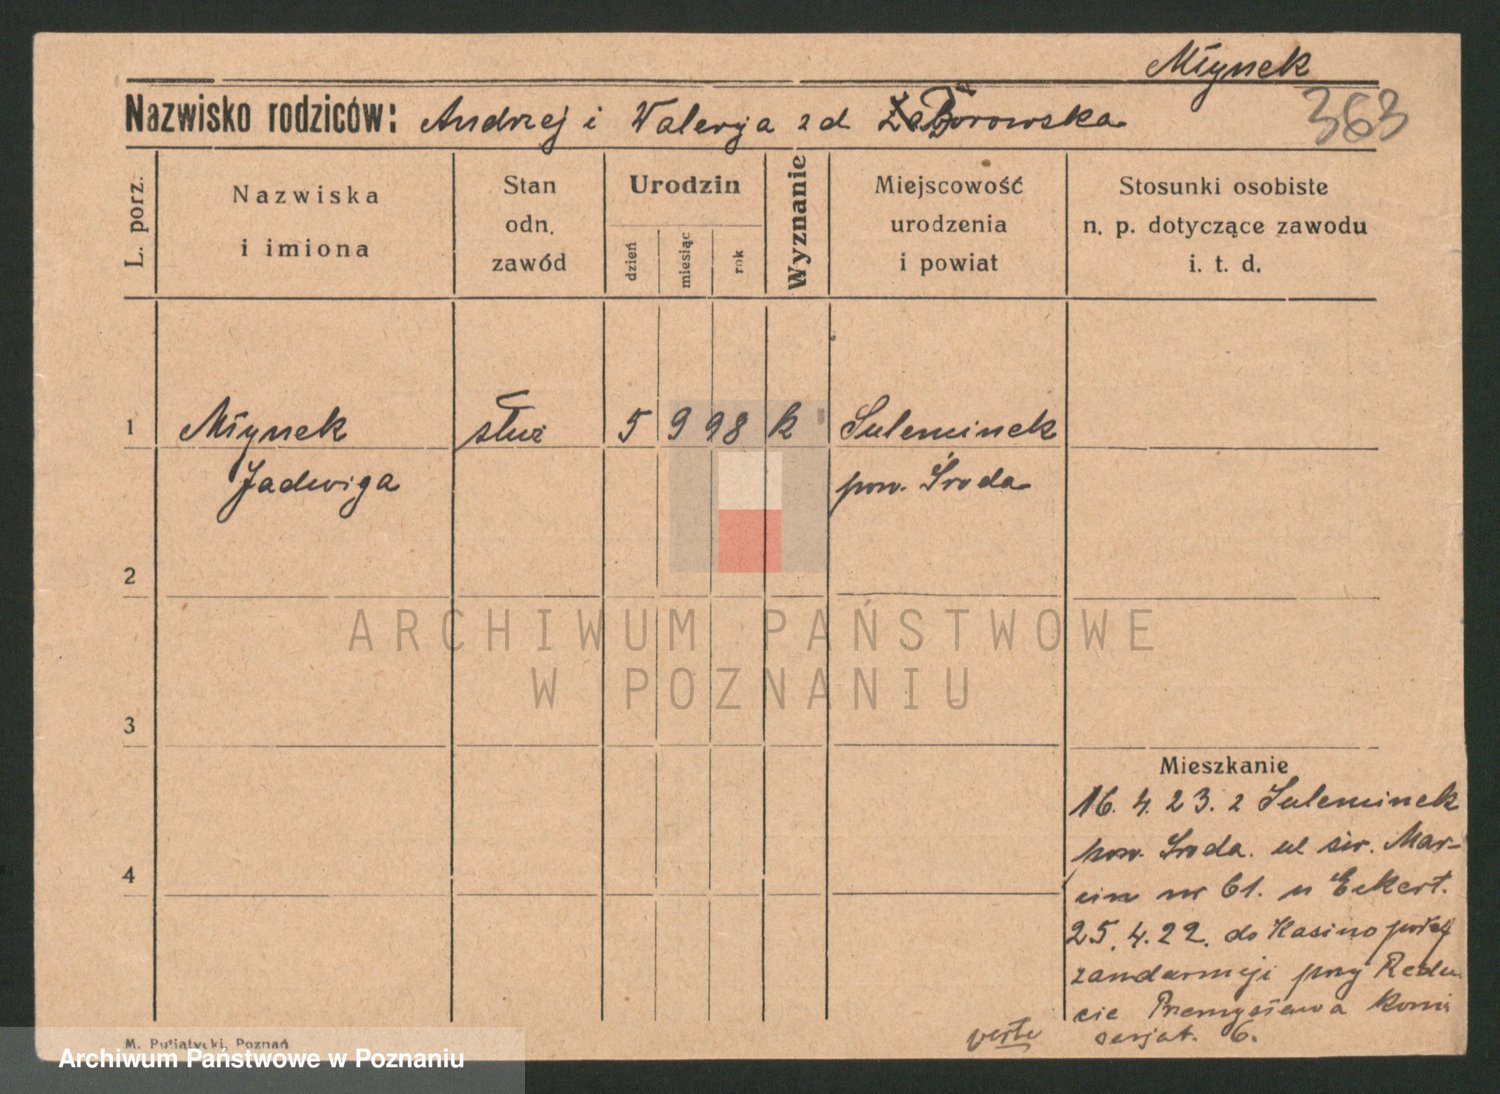 Młynek
Nazwisko rodziców: Andrzej i Walerja zd Borowska
363
L. porz.
Nazwiska
i imiona
Stan
odn.
zawód
Urodzin
dzień
miesiąc
rok
Wyznanie
Miejscowość
urodzenia
i powiat
Stosunki osobiste
n. p. dotyczące zawodu
i. t. d.
1
Młynek służ 5 9 98 k Suleminek
Jadwiga pow. Środa
2
ARCHIWUM PAŃSTWOWE
W POZNANIU
3
Mieszkanie
16. 4. 23. z Suleminek
pow. Środa. ul św. Mar-
cin nr 61. u Eckert.
4
25. 4. 22. do Kasino
żandarmeji przy Redu
cie Przemysława komi
sarjat. 6.
verte
M. Putiatycki, Poznań
Archiwum Państwowe w Poznaniu